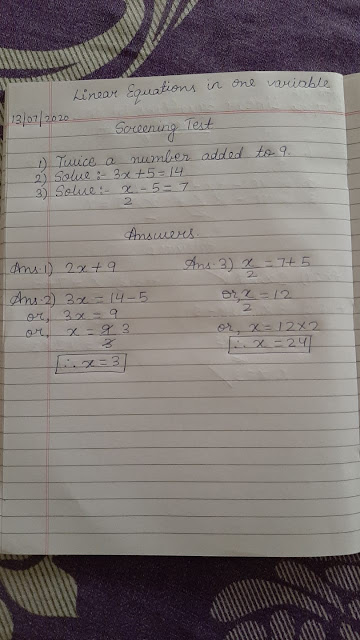 Linear Equations in one variable
13/07/2020
Screening Test
1) Twice a number added to 9.
2) Solve :- 3x+5=14
3) Solve :- x/2 - 5 = 7
Answers.
Ans 1) 2x+9
Ans 2) 3x = 14-5
or, 3x = 9
or, x = 9/3 3
∴ x = 3
Ans 3) x/2 = 7+5
or, x/2 = 12
or, x = 12×2
∴ x = 24